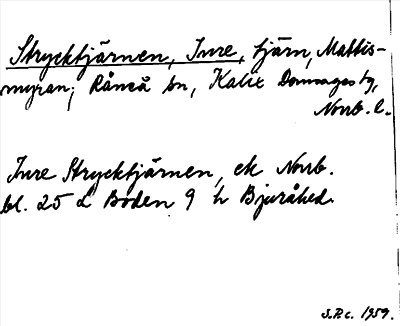 Strycktjärnen, Inre, tjärn, Mattis-
myran; Råneå sn, Kalix Domsagas tg,
Norrb. l.
Inre Strycktjärnen, ek Norrb.
bl. 25 L Boden 9 h Bjuråhed.
S.P.c. 1959.